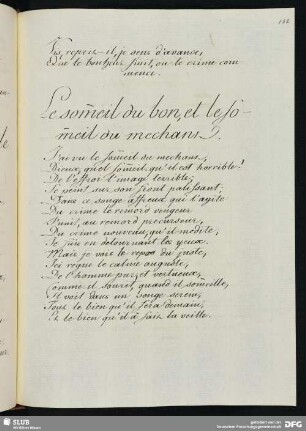 Vis, repris-il, je sens d'avance,
Que le bonheur finit, où le crime com
mence.
Le someil du bon, et le so-
meil du mechant.
J'ai vu le someil du mechant,
Dieux, quel someil qu'il est horrible!
De l'effroi l'image terrible,
Se peint sur son front palissant;
Dans ce songe affreux qui l'agite
Du crime le remord vengeur
S'unit, au remord precurseur,
Du crime nouveau, qu'il medite,
Je fuis en detournant les yeux.
Mais je vois le repos du juste,
Ici regne le calme auguste,
De l'homme pur, et vertueux,
Comme il sourit, quand il someille,
Il voit dans un songe serein,
Tout le bien qu'il fera demain,
Et le bien qu'il à fait la veille.
SLUB
DFG